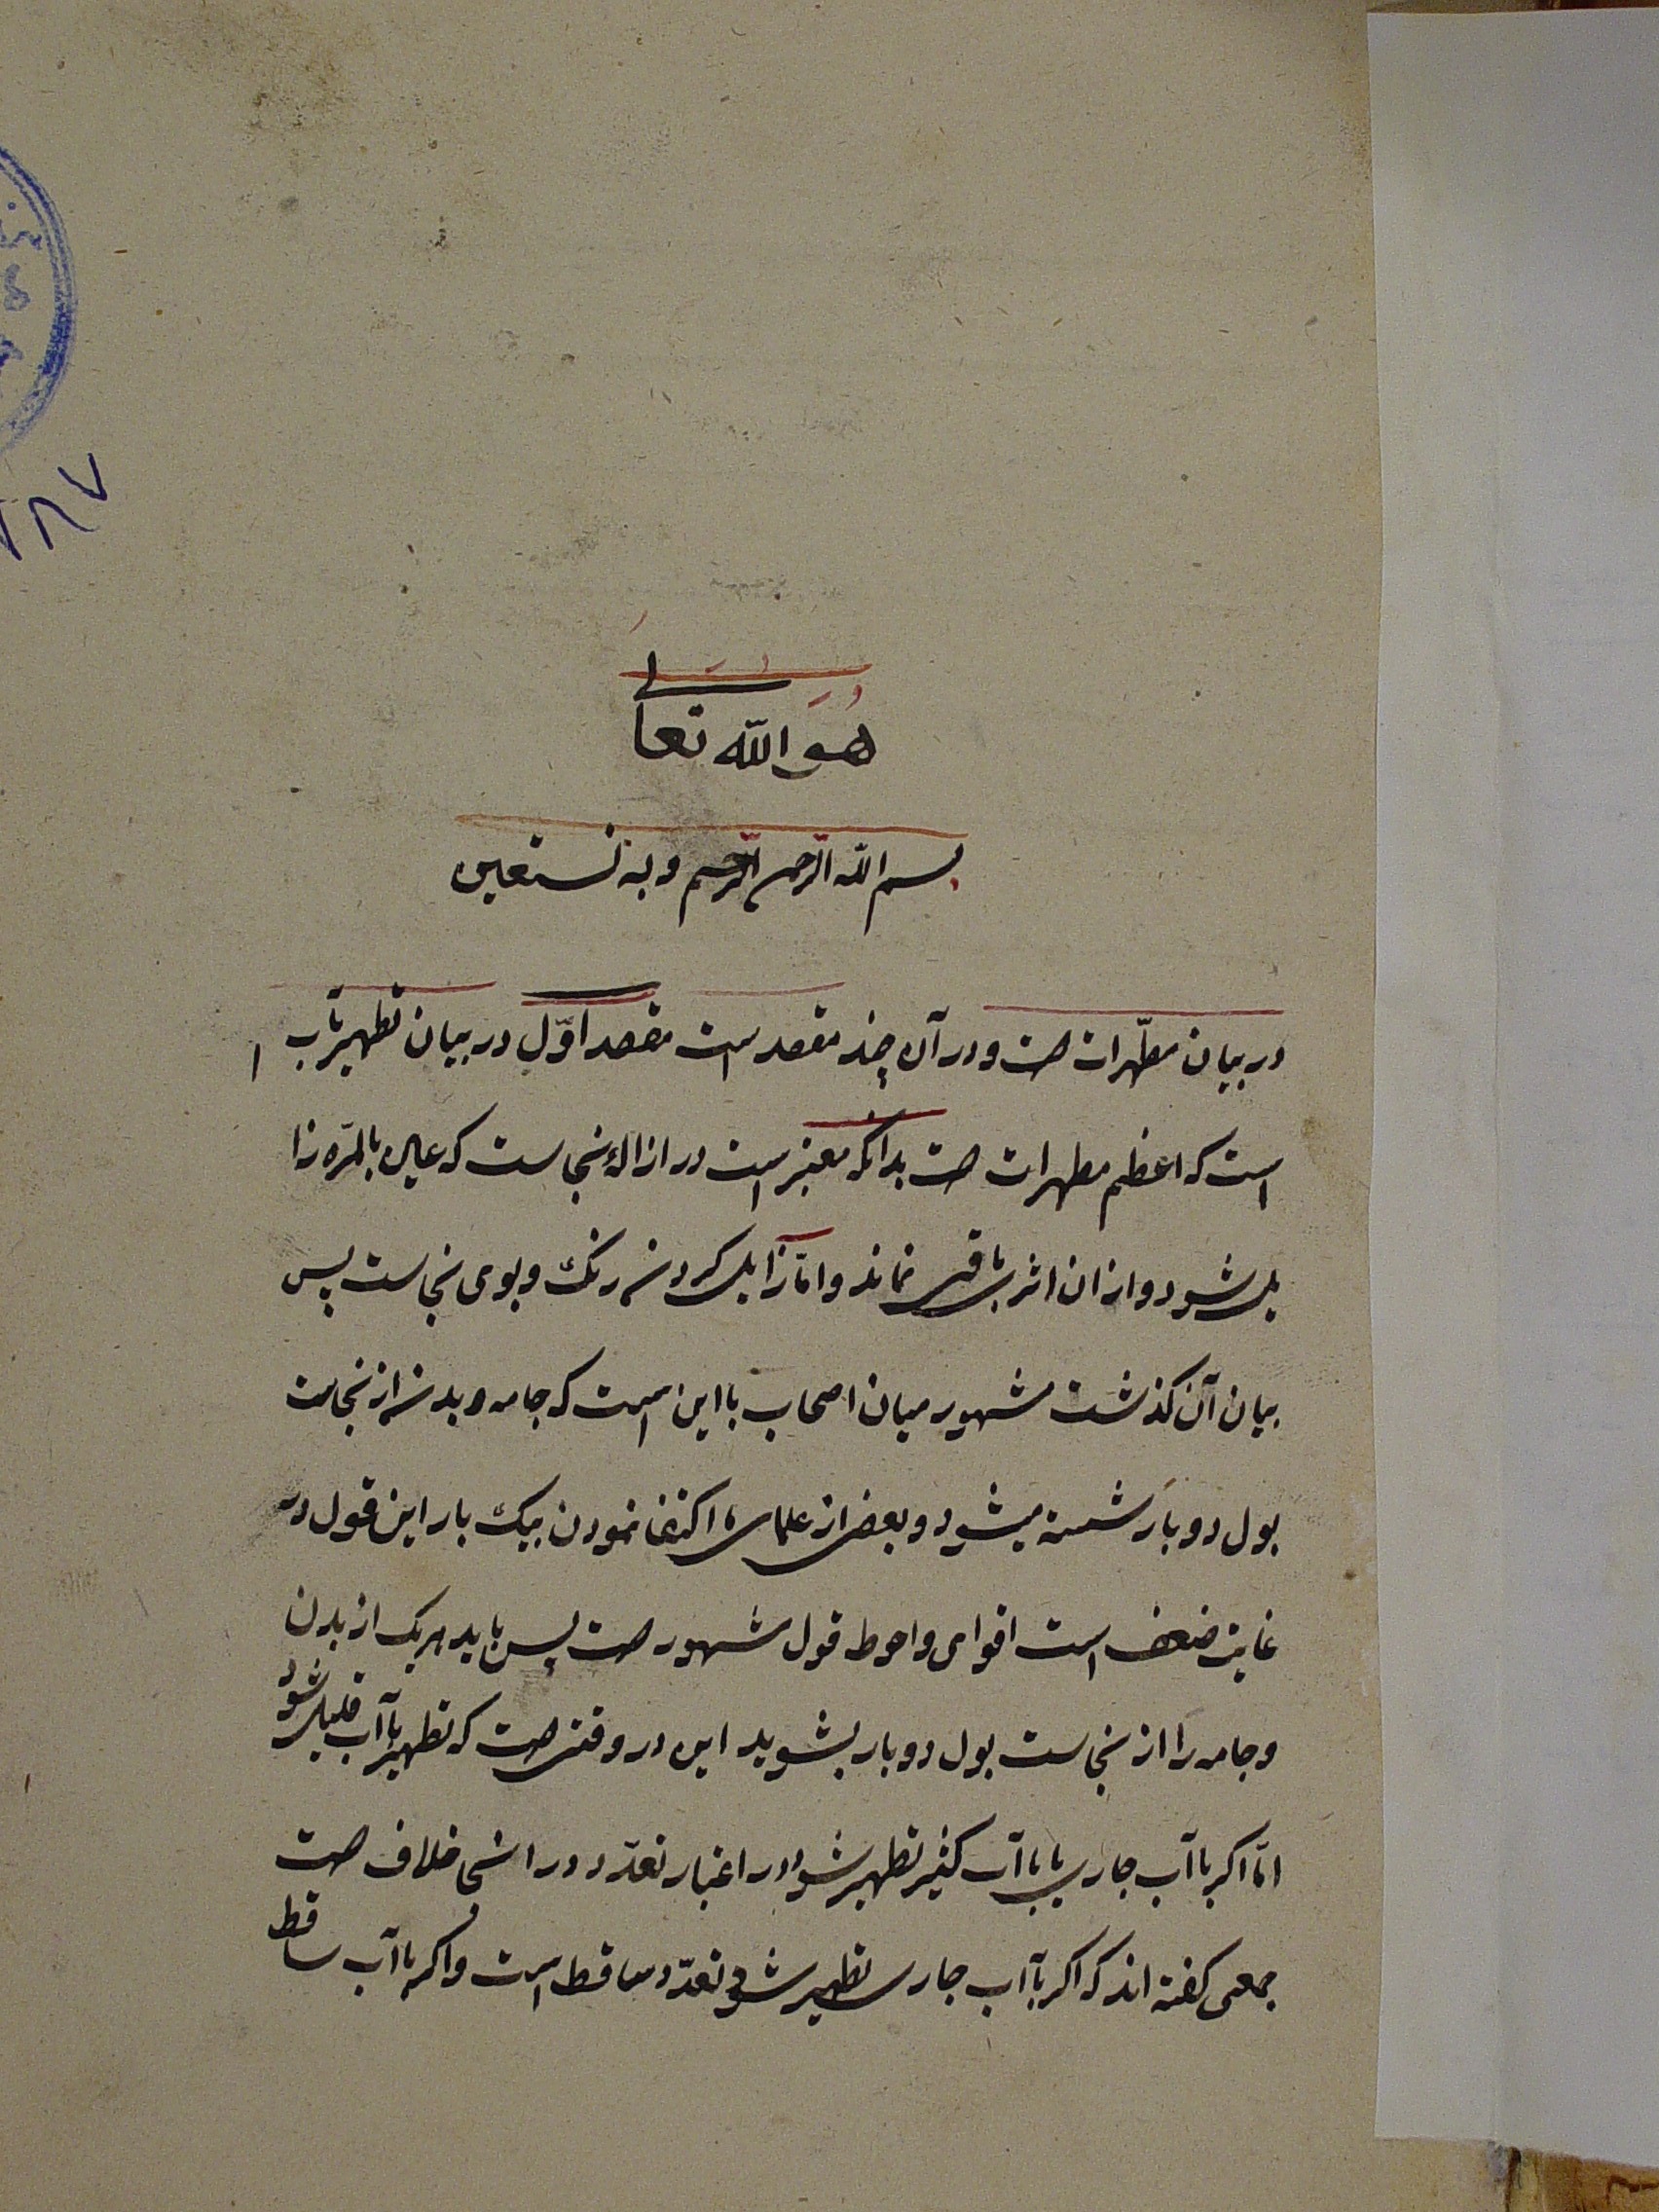 هو الله تعالی
بسم الله الرحمن الرحیم و به نستعین
در بیان مطهّرات است و در آن چند مقصد است مقصد اوّل در بیان تطهیر بآب
است که اعظم مطهرات است بدانکه معتبر است در ازالهٔ نجاست که عین بالمرّه زا
یل شود و از ان اثر باقی نماند و امّا زایل کردن رنک و بوی نجاست پس
بیان آن کذشت مشهور میان اصحاب با این است که جامه و بدن از نجاست
بول دو بار شسته میشود و بعضی از علمای اکتفا نمودن بیک بار این قول در
غایت ضعف است اقوای و احوط قول مشهور است پس باید هریک از بدن
و جامه را از نجاست بول دو بار بشوید این در وقتی است که تطهیر بآب قلیل شود
امّا اکر با آب جاری یا با آب کثیر تطهیر شود در اعتبار تعدّد در خلاف است
جمعی کفته اند که اکر بآب جاری تطهیر شود تعدّد ساقط است و اکر با آب ساقط
۲۸۷